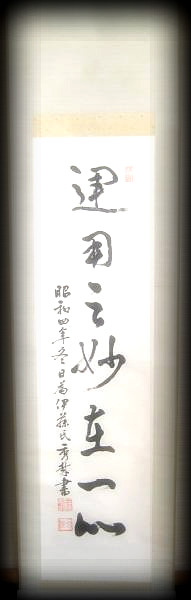 運用之妙在一心
昭和四年冬日為伊藤氏